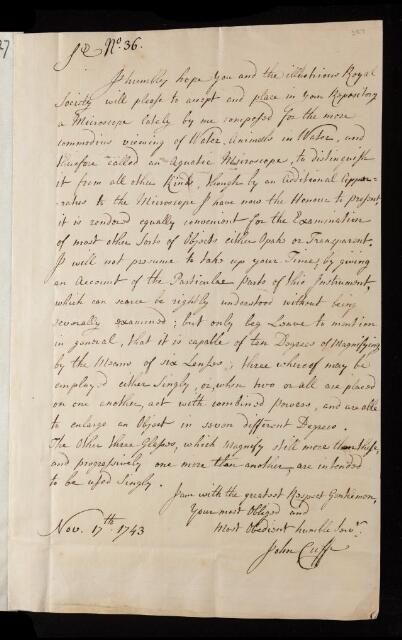 No. 36.
I humbly hope You and the illustrious Royal
Society will please to accept and place in Your Repository
a Microscope lately by me composed for the more
commodious viewing of Water, Animals in Water, and
therefore called an Aquatic Microscope, to distinguish
it from all other Kinds, though by an additional Appa-
ratus to the Microscope I have now the Honour to present
it is rendered equally convenient for the Examination
of most other Sorts of Objects either Opake or Transparent.
I will not presume to take up your Time, by giving
an Account of the Particular parts of this Instrument,
which can scarce be rightly understood without being
severally examined; but only beg Leave to mention
in general, that it is capable of ten Degrees of Magnifying
by the Means of six Lenses; three whereof may be
employ'd either Singly, or, when two or all are placed
on one another, act with combined Powers, and are able
to enlarge an Object in seven different Degrees.
The Other three Glasses, which Magnify still more than these,
and progressively one more than another, are intended
to be used Singly.
I am with the greatest Respect Gentlemen,
Your most Obliged and
Most Obedient humble Servt.
Nov. 17th 1743
John Cuff